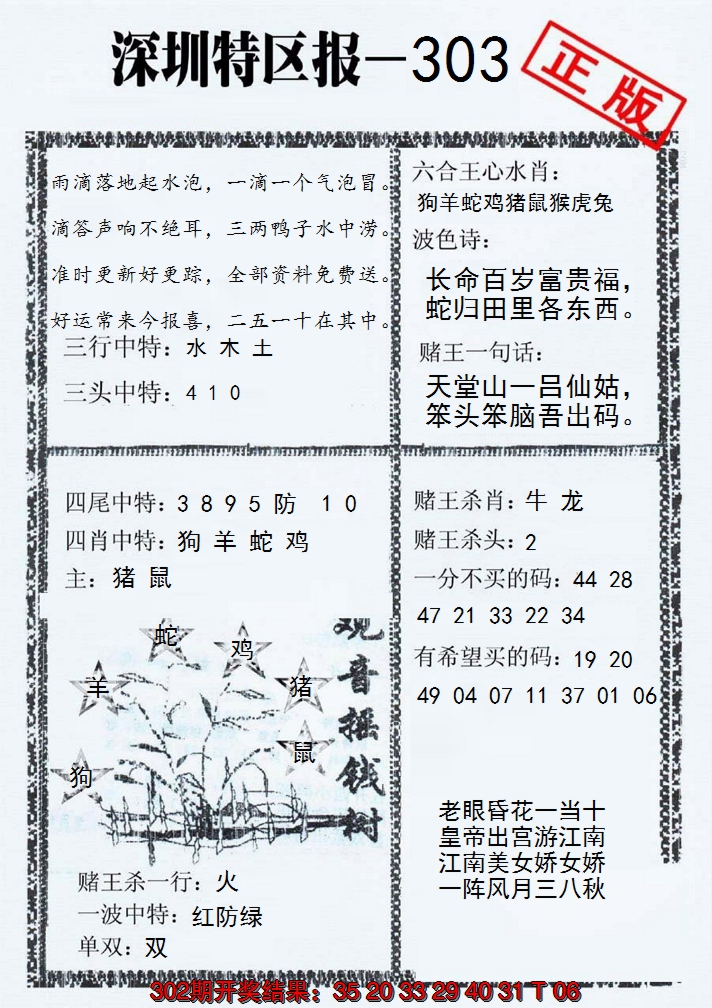 深圳特区报－303
正版
雨滴落地起水泡，一滴一个气泡冒。
滴答声响不绝耳，三两鸭子水中涝。
准时更新好更踪，全部资料免费送。
好运常来今报喜，二五一十在其中。
三行中特：水 木 土
三头中特：4 1 0
六合王心水肖：
狗羊蛇鸡猪鼠猴虎兔
波色诗：
长命百岁富贵福，
蛇归田里各东西。
赌王一句话：
天堂山一吕仙姑，
笨头笨脑吾出码。
四尾中特：3 8 9 5 防 1 0
四肖中特：狗 羊 蛇 鸡
主：猪 鼠
观音摇钱树
蛇
鸡
羊
猪
鼠
狗
赌王杀一行：火
一波中特：红防绿
单双：双
赌王杀肖：牛 龙
赌王杀头：2
一分不买的码：44 28
47 21 33 22 34
有希望买的码：19 20
49 04 07 11 37 01 06
老眼昏花一当十
皇帝出宫游江南
江南美女娇女娇
一阵风月三八秋
302期开奖结果：35 20 33 29 40 31 T 06